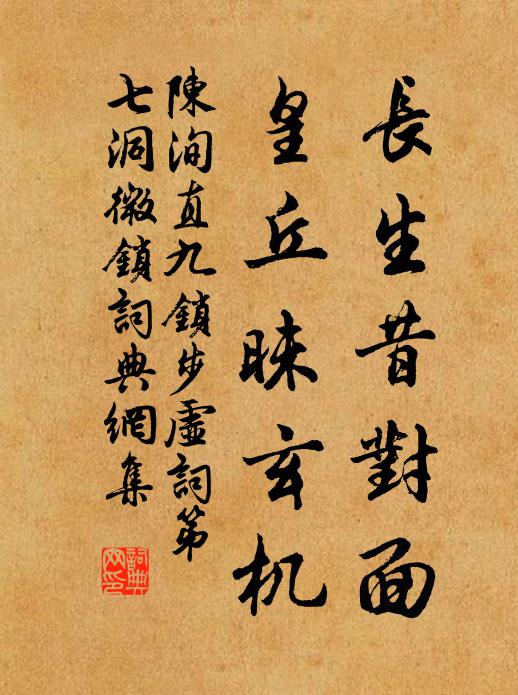 長生昔對面
皇丘昧玄机
陳洵直九鎖步虛詞第
七洞微鎖詞典網集
詞典
网印